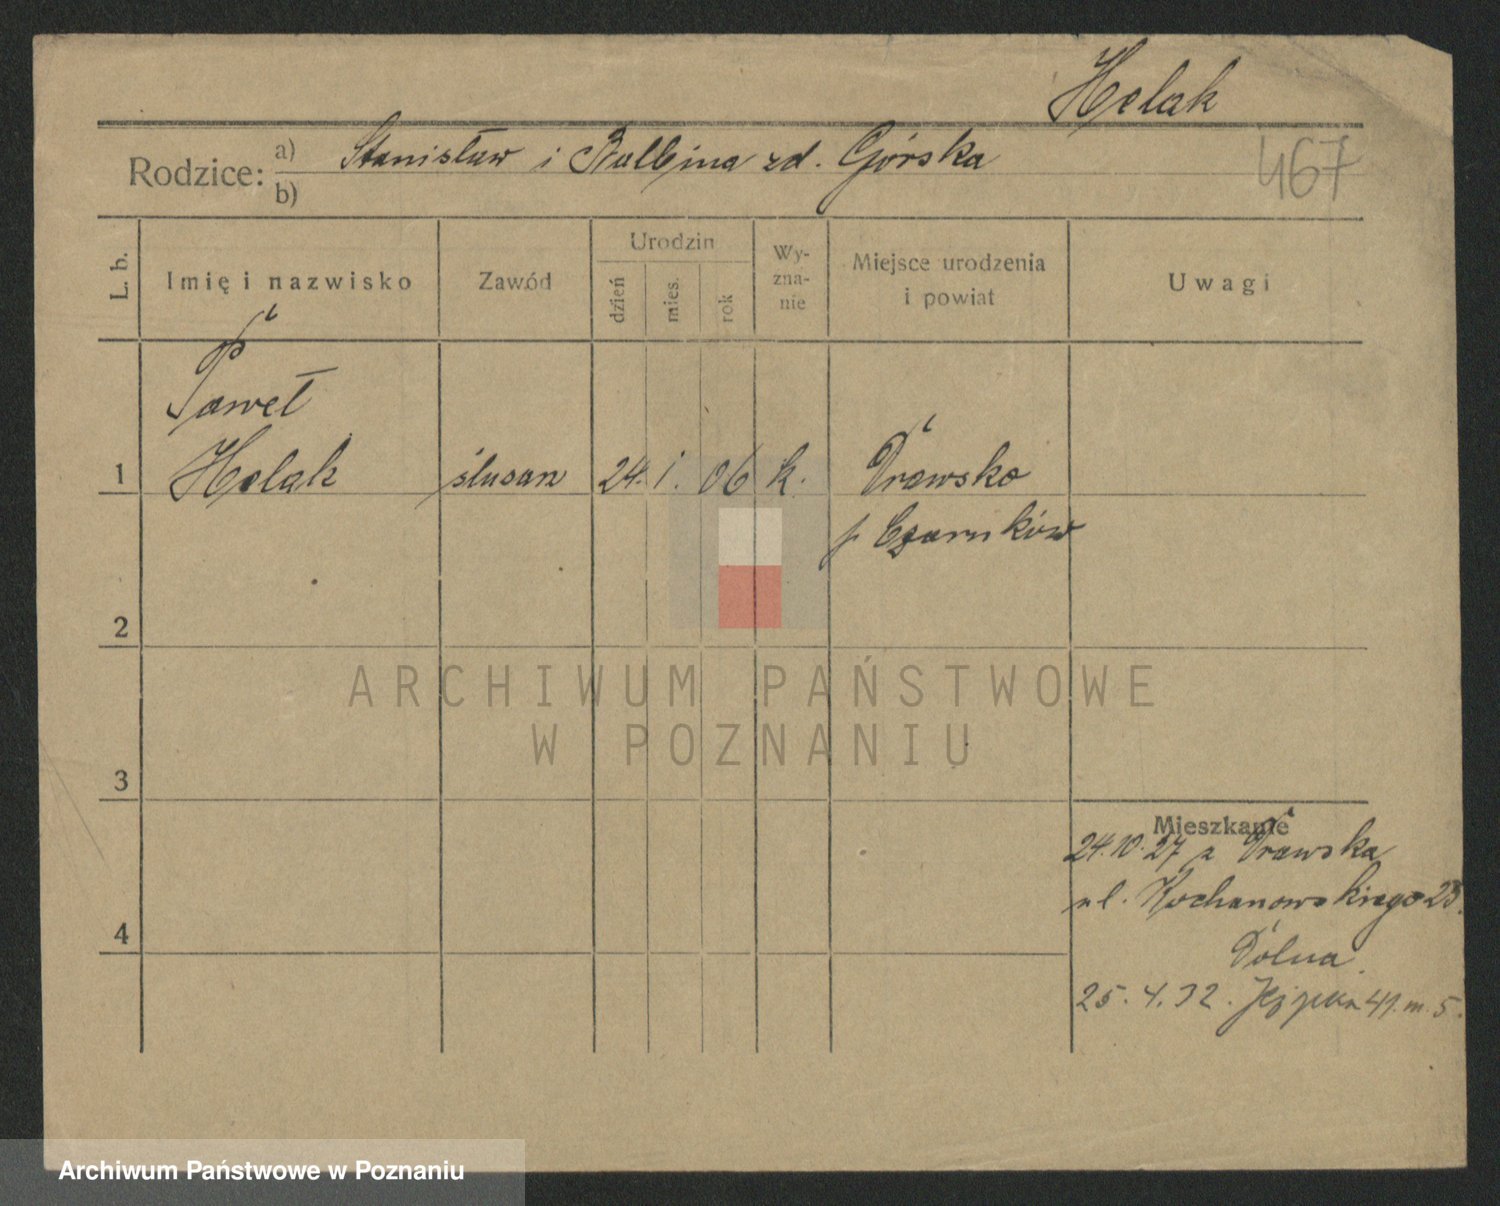 Helak
467
Rodzice: a) Stanisław i Balbina zd. Górska
b)
L. b.
Imię i nazwisko
Zawód
Urodzin
dzień
mies.
rok
Wy-
zna-
nie
Miejsce urodzenia
i powiat
Uwagi
Paweł
1 Helak ślusarz 24. 1. 06 k. Drawsko
p Czarnków
2
3
4
Mieszkanie
24.10.27 z Drawska
ul. Kochanowskiego 23.
Dolna
25.4.32. 41 m. 5.
ARCHIWUM PAŃSTWOWE
W POZNANIU
Archiwum Państwowe w Poznaniu